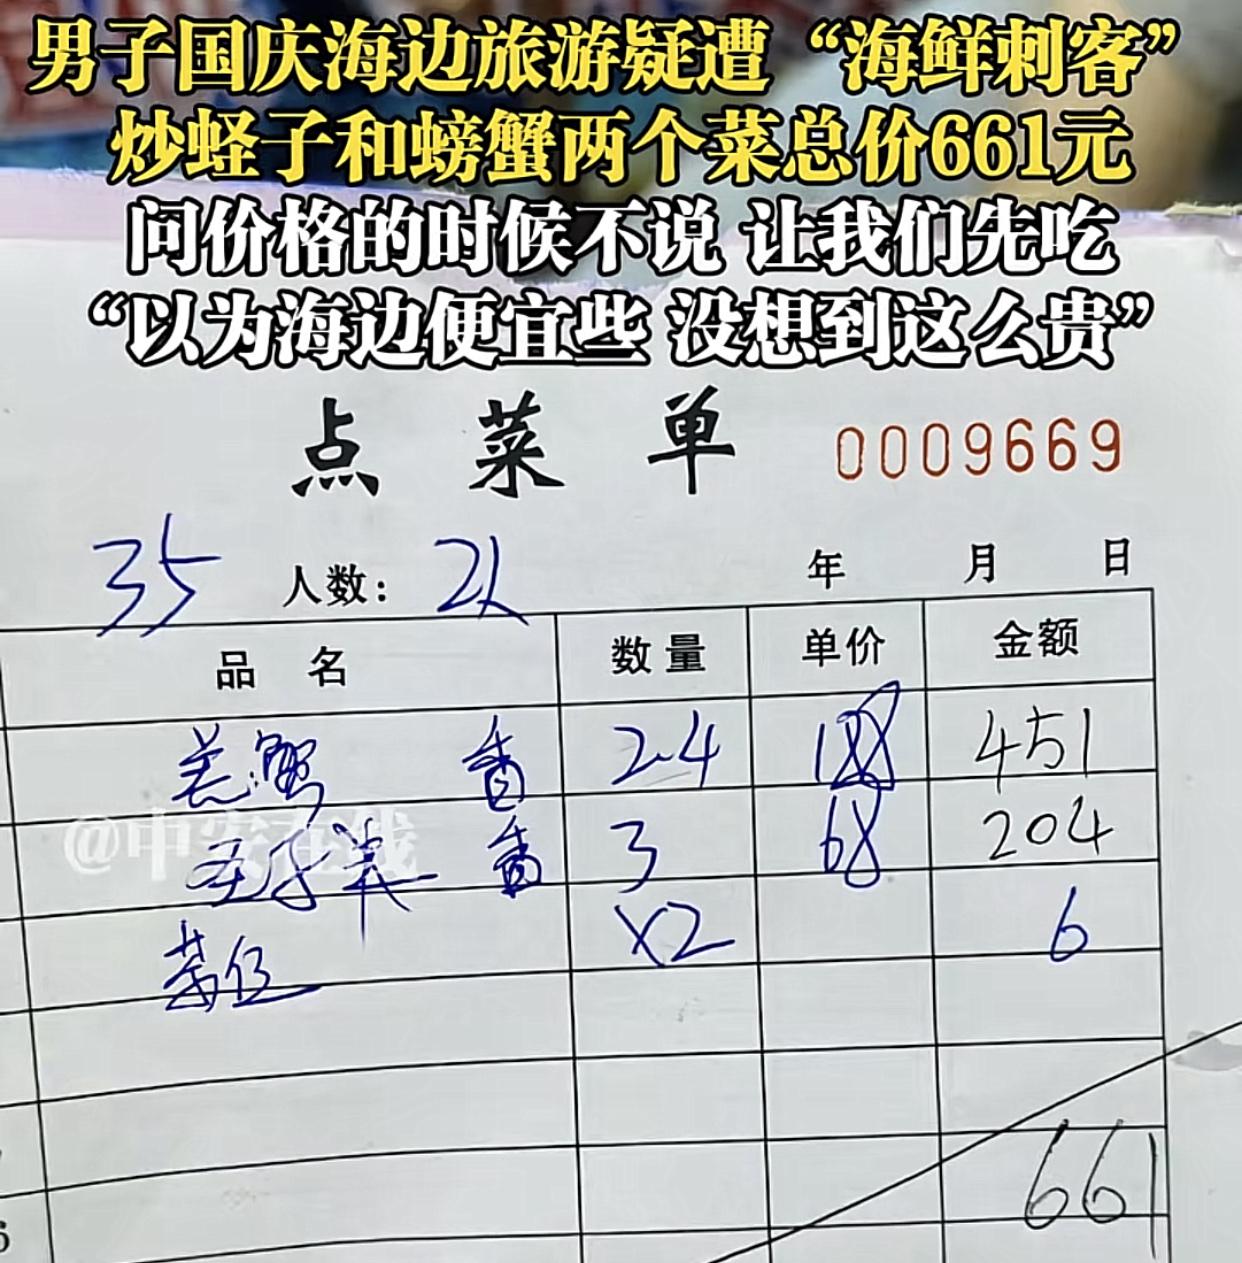 男子国庆海边旅游疑遭“海鲜刺客”
炒蛏子和螃蟹两个菜总价661元
问价格的时候不说 让我们先吃
“以为海边便宜些 没想到这么贵”
点菜单 0009669
35 人数: 2人 年 月 日
品名 数量 单价 金额
蟹 香 2.4 188 451
@中安在线
3 68 204
茶位 x2 6
661
6